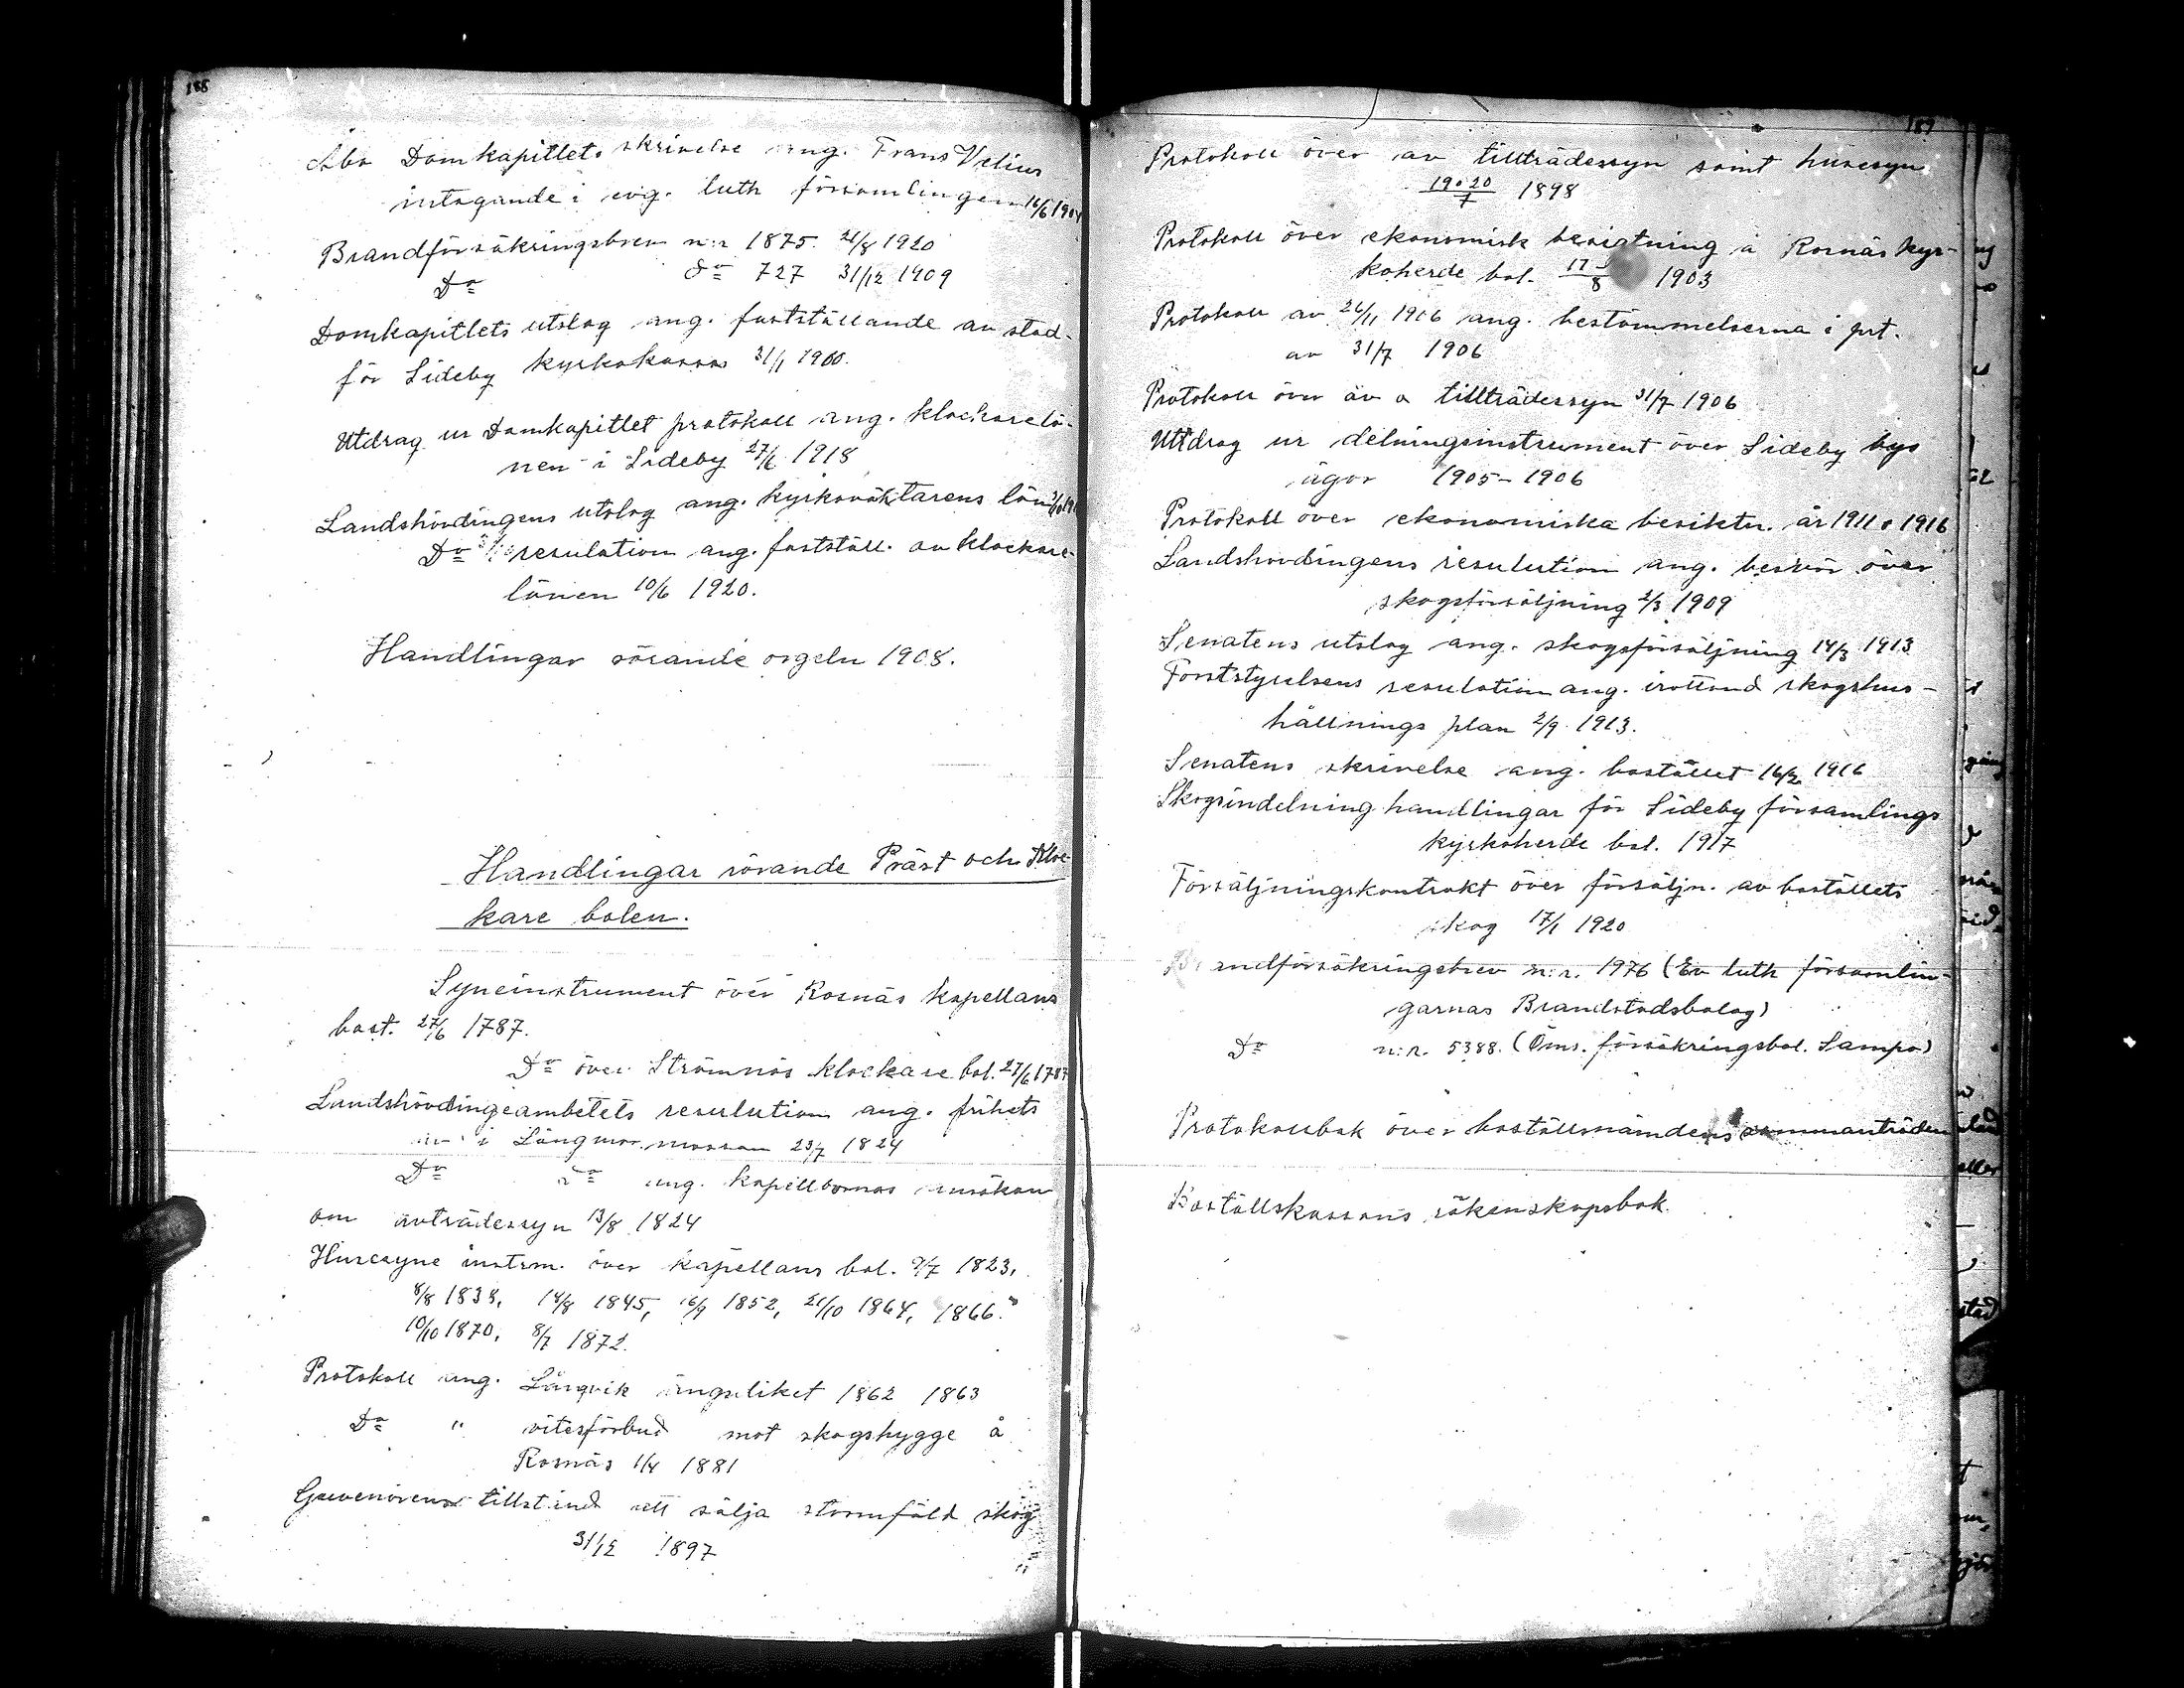 188
Åbo Domkapitlets skrivelse ang. Frans Velius
intagande i evg. luth församlingen 16/6 1904
Brandförsäkringsbrev n:r 1875. 21/8 1920
Do do 727 31/12 1909
Domkapitlets utslag ang. fastställande av stad-
för Sideby kyrkokassa 31/1 1900.
Utdrag ur Domkapitlet protokoll ang. klockarelö-
nen i Sideby 27/6 1918
Landshövdingens utslag ang. kyrkoväktarens lön
Do resulution ang. fastställ. av klockare-
lönen 10/6 1920.
Handlingar rörande orgeln 1908.
Handlingar rörande Präst och Kloc-
kare bolen.
Syneinstrument över Rosnäs kapellans
bost. 27/6 1787.
Do över Strömnäs klockare bol. 27/6 1787
Landshövdingeambetets resulution ang. frihets
i Långmossan 23/7 1824
Do do ang. kapellboernas ansökan
om avträdessyn 13/8 1824
Huresyne instrm. över kapellans bol. 9/7 1823,
8/8 1838, 14/8 1845, 16/9 1852, 21/10 1864, 1866.
10/10 1870, 8/7 1872.
Protokoll ang. Långvik ängsliket 1862 1863
Do " vitesförbud mot skogshygge å
Rosnäs 1/4 1881
Guvenörens tillstånd att sälja stormfäld skog
31/12 1897
187
Protokoll över av tillträdessyn samt husesyn
19 o 20/7 1898
Protokoll över ekonomisk besigtning å Rosnäs kyr-
koherde bol. 17/8 1903
Protokoll av 26/11 1906 ang. bestämmelserna i prt.
av 31/7 1906
Protokoll över av o tillträdessyn 31/7 1906
Uttdrag ur delningsinstrument över Sideby bys
ägor 1905-1906
Protokoll över ekonomiska besiktn. år 1911 o 1916
Landshövdingens resulution ang. besvär över
skogsförsäljning 2/3 1909
Senatens utslag ang. skogsförsäljning 14/3 1913
Forststyrelsens resulution ang. skogshus-
hållnings plan 2/9 1913.
Senatens skrivelse ang. bostället 16/2 1916
Skogsindelning handlingar för Sideby församlings
kyrkoherde bol. 1917
Försäljningskontrakt över försäljn. av boställets
skog 17/1 1920
Brandförsäkringsbrev n:r. 1976 (Ev luth församlin-
garnas Brandstodsbolag)
Do n:r. 5388. (Öms. försäkringsbol. Sampo)
Protokollsbok över boställsnämdens sammanträden
Boställskassans räkenskapsbok.